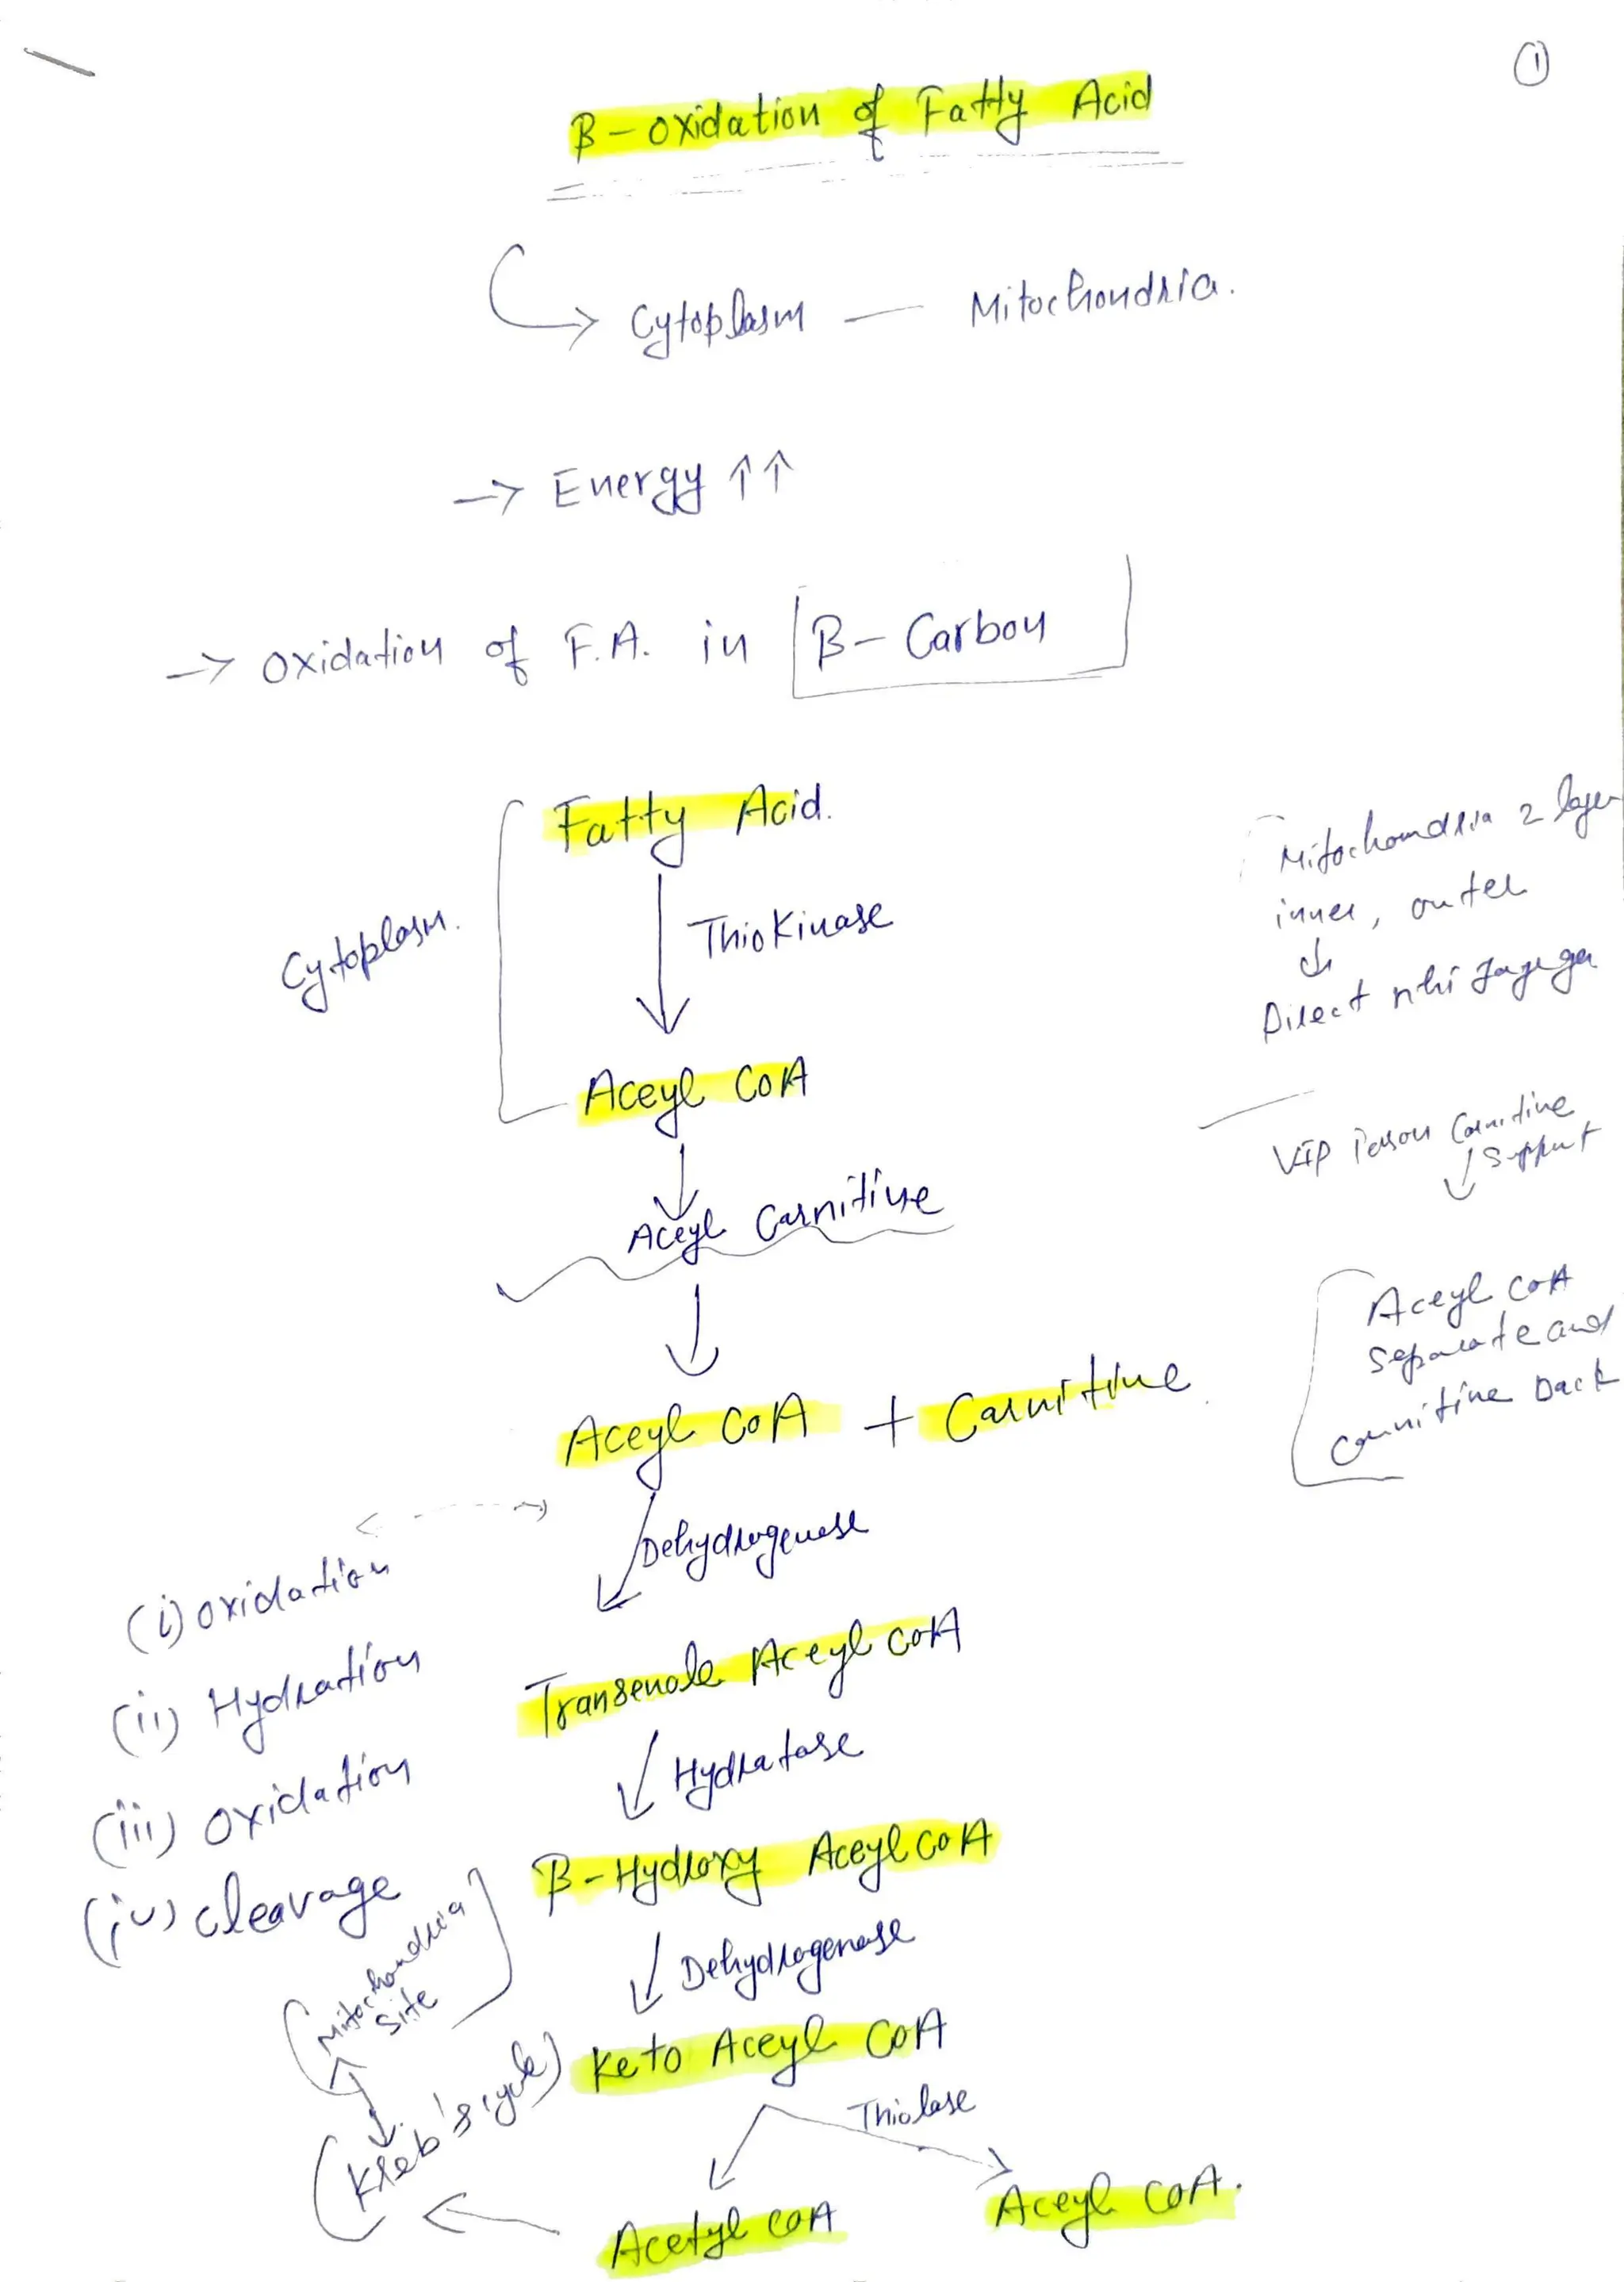 ①
β-oxidation of Fatty Acid
Cytoplasm — Mitochondria.
→ Energy ↑↑
→ Oxidation of F.A. in β-Carbon
Fatty Acid.
Cytoplasm.
Thiokinase
Aceyl CoA
Aceyl Carnitine
Aceyl CoA + Carnitine
Dehydrogenase
Transenole Aceyl CoA
Hydratase
β-Hydroxy Aceyl CoA
Dehydrogenase
Keto Aceyl CoA
Thiolase
Acetyl CoA
Aceyl CoA.
Mitochondria 2 layer
inner, outer
Direct nhi jayega
VIP Person Carnitine
Support
Aceyl CoA
Separate and
Carnitine back
(i) oxidation
(ii) Hydration
(iii) oxidation
(iv) cleavage
Mitochondria
Site
(Kreb's cycle)